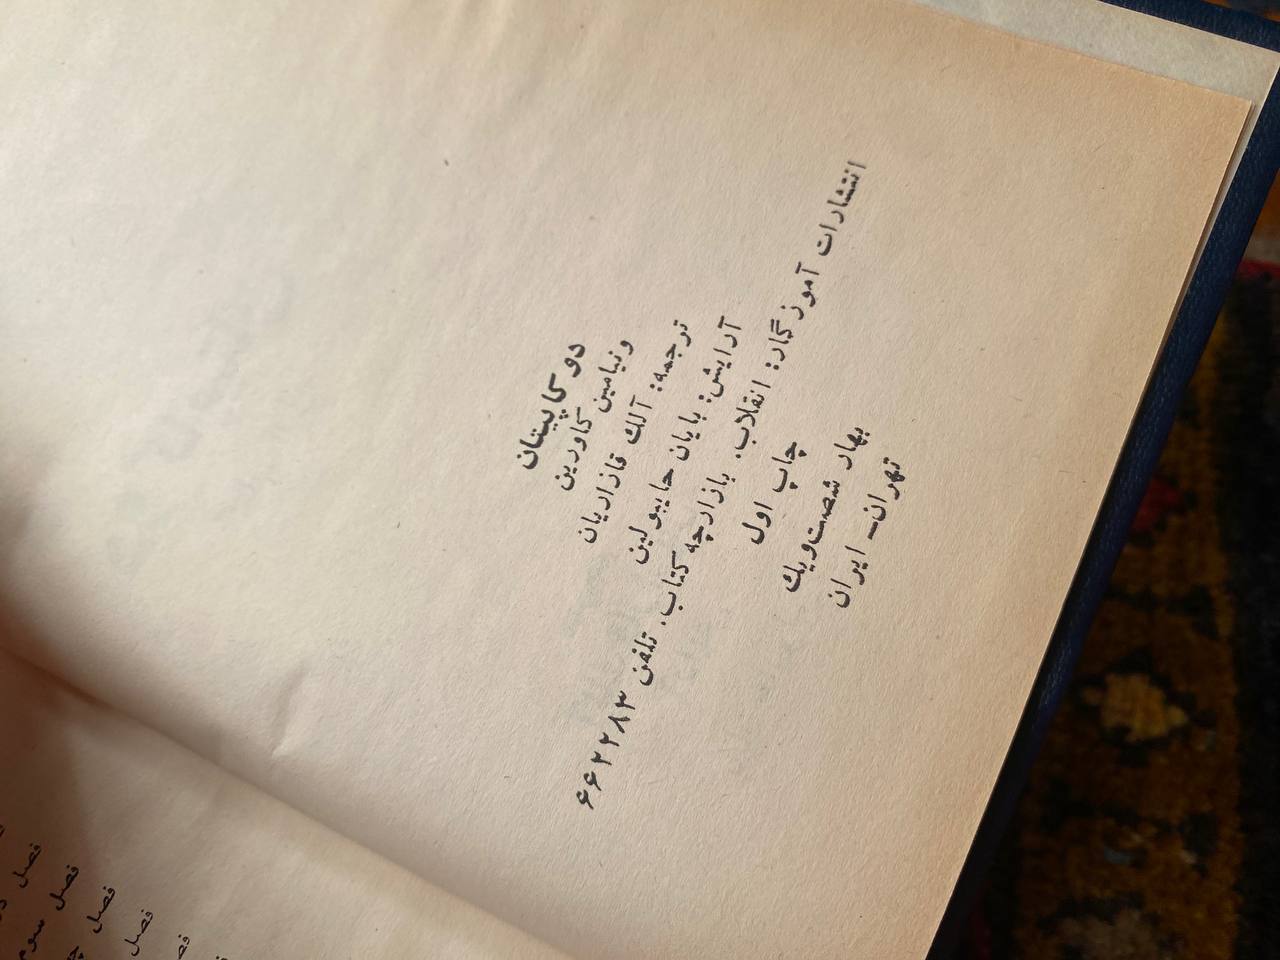 دو کاپیتان
ونیامین کاورین
ترجمه: آلك قازاریان
آرایش: بایان حایبولین
انتشارات آموزگار: انقلاب. بازارچه کتاب. تلفن ۶۶۲۲۸۳
چاپ اول
بهار شصت‌ویك
تهران- ایران
فصل
فصل سوم
فصل
فصل